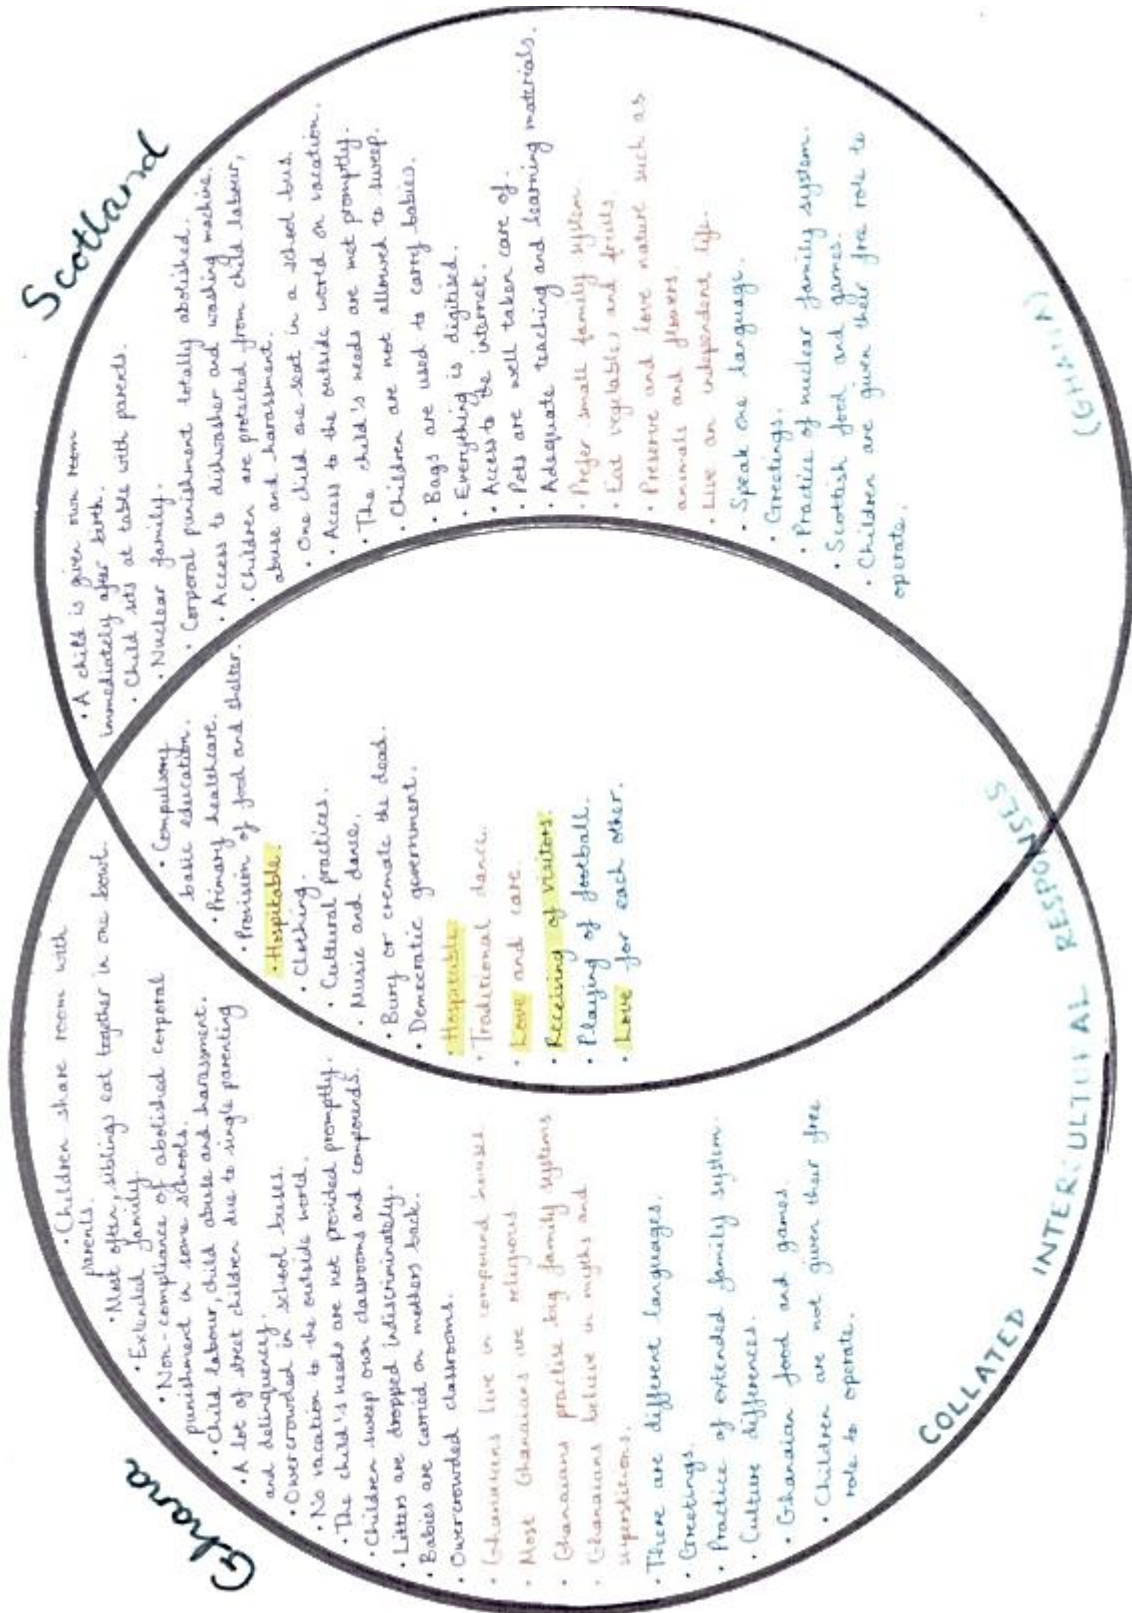 Ghana
• Children share room with
parents.
• Most often, siblings eat together in one bowl.
• Extended family.
• Non-compliance of abolished corporal
punishment in some schools.
• Child labour, child abuse and harassment.
• A lot of street children due to single parenting
and delinquency.
• Overcrowded in school buses.
• No vacation to the outside world.
• The child's needs are not provided promptly.
• Children sweep own classrooms and compounds.
• Litters are dropped indiscriminately.
• Babies are carried on mothers back.
• Overcrowded classrooms.
• Ghanaians live in compound houses
• Most Ghanaians are religious
• Ghanaians practise big family systems
• Ghanaians believe in myths and
superstitions.
• There are different languages.
• Greetings.
• Practice of extended family system.
• Culture differences.
• Ghanaian food and games.
• Children are not given their free
role to operate.
• Compulsory
basic education.
• Primary healthcare.
• Provision of food and shelter.
• Hospitable.
• Clothing.
• Cultural practices.
• Music and dance.
• Bury or cremate the dead.
• Democratic government.
• Hospitable
• Traditional dance.
• Love and care.
• Receiving of visitors.
• Playing of football.
• Love for each other.
Scotland
• A child is given own room
immediately after birth.
• Child sits at table with parents.
• Nuclear family.
• Corporal punishment totally abolished.
• Access to dishwasher and washing machine.
• Children are protected from child labour,
abuse and harassment.
• One child one seat in a school bus.
• Access to the outside world on vacation.
• The child's needs are met promptly.
• Children are not allowed to sweep.
• Bags are used to carry babies.
• Everything is digitised.
• Access to the internet.
• Pets are well taken care of.
• Adequate teaching and learning materials.
• Prefer small family system
• Eat vegetables and fruits
• Preserve and love nature such as
animals and flowers
• Live an independent life.
• Speak one language.
• Greetings.
• Practice of nuclear family system.
• Scottish food and games.
• Children are given their free role to
operate.
COLLATED INTERCULTURAL RESPONSES
(GHANA)